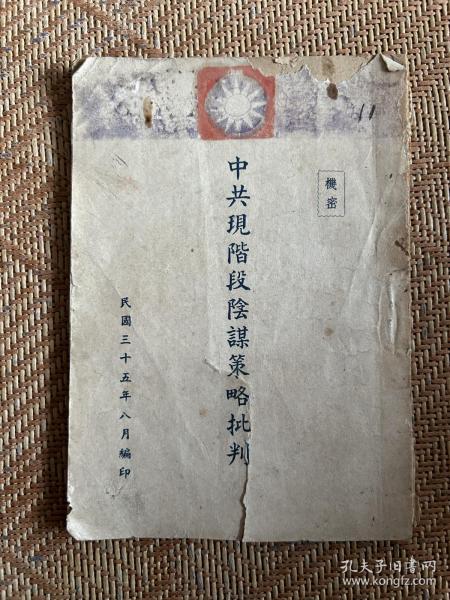 11
機密
中共現階段陰謀策略批判
民國三十五年八月編印
孔夫子旧书网
www.kongfz.com